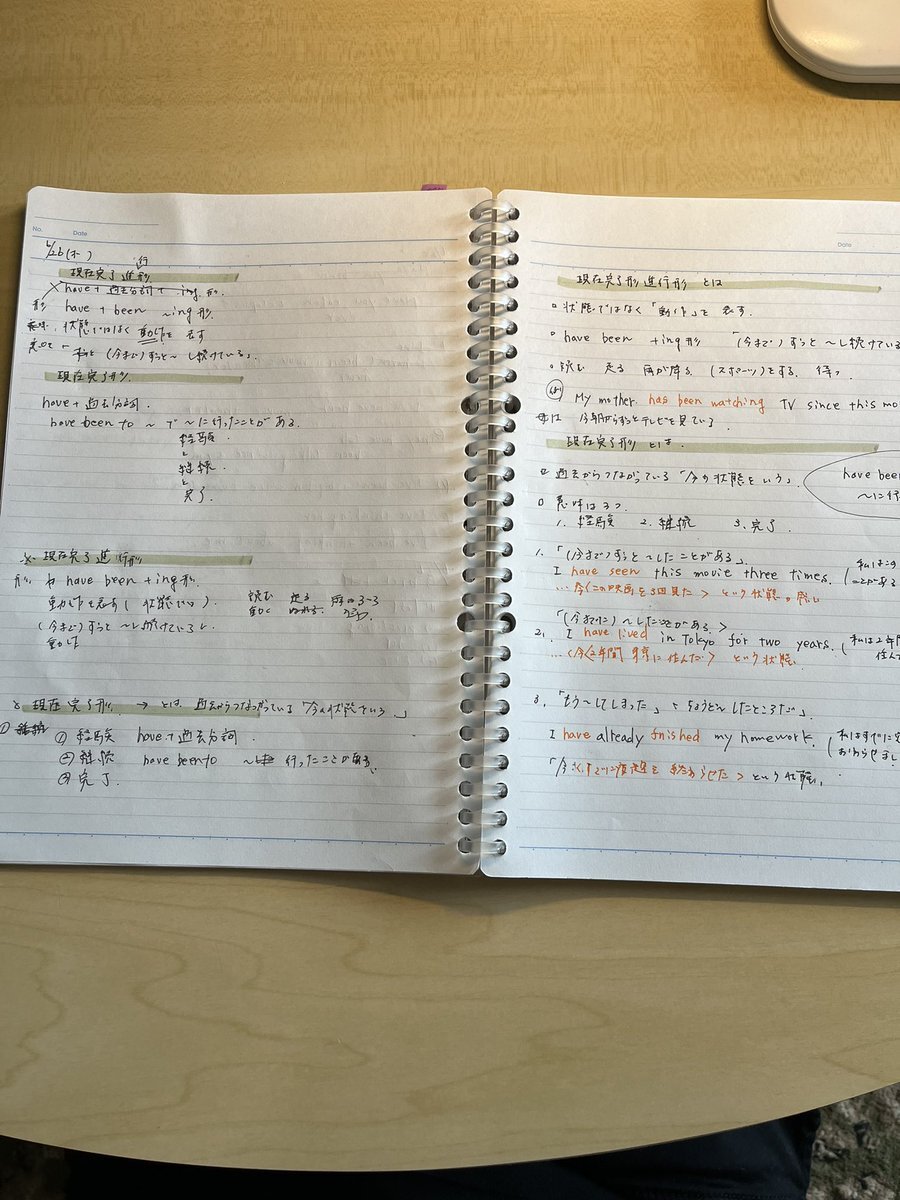 No.
Date
行
現在完了進形
have + 過去分詞 + ing形
形 have + been ~ing形
意味 状態ではなく 動作を 表す
「 (今まで)ずっと~し続けている」
現在完了形
have + 過去分詞.
have been to ~ で ~に行ったことがある.
経験.
と
継続.
と
完了
現在完了進行形
形は have been +ing形.
動作を表す( 状態でない).
読む 走る
(今まで)ずっと~し続けている
動した
現在完了形 → とは、過去からつながっている「今の状態をいう。」
① 継続
① 経験 have + 過去分詞.
② 継続 have been to ~ 行ったことがある.
③ 完了.
Date
現在完了形 進行形 とは
○状態ではなく「動作」を 表す.
○ have been +ing形 「(今まで)ずっと~し続けている
○ 読む 走る 雨が降る. (スポーツ)をする. 待つ
例 My mother has been watching TV since this mo
母は 今朝からずっとテレビを見ている.
現在完了形 とは.
○ 過去からつながっている「今の状態をいう」.
have been
~に行
○ 意味は3つ.
1. 経験 2. 継続 3. 完了.
1. 「(今まで)ずっと~したことがある」
I have seen this movie three times.
… 今<この映画を3回見た> という状態
「(今までに)~したことがある.>
2. I have lived in Tokyo for two years. (私は2年間
住んで
…<今2年間 に住んだ> という状態.
3. 「もう~してしまった」・「ちょうど~したところだ」.
I have already finished my homework. (私はすでに
おわらせまし
「今<すでに宿題を 終わらせた> という状態.